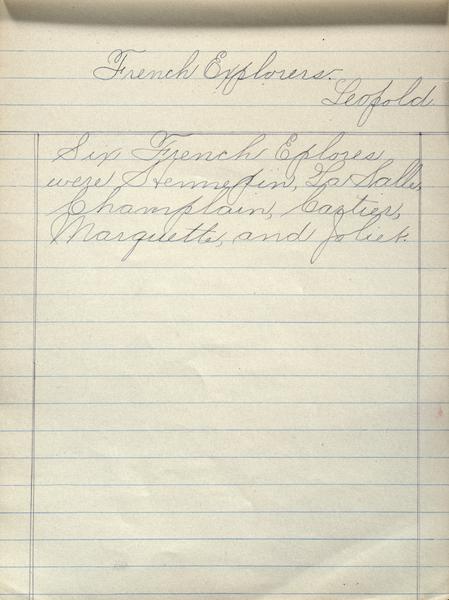 French Explorers.
Leopold
Six French Eplores
were Hennepin, La Salle,
Champlain, Cartier,
Marquette, and Joliet.